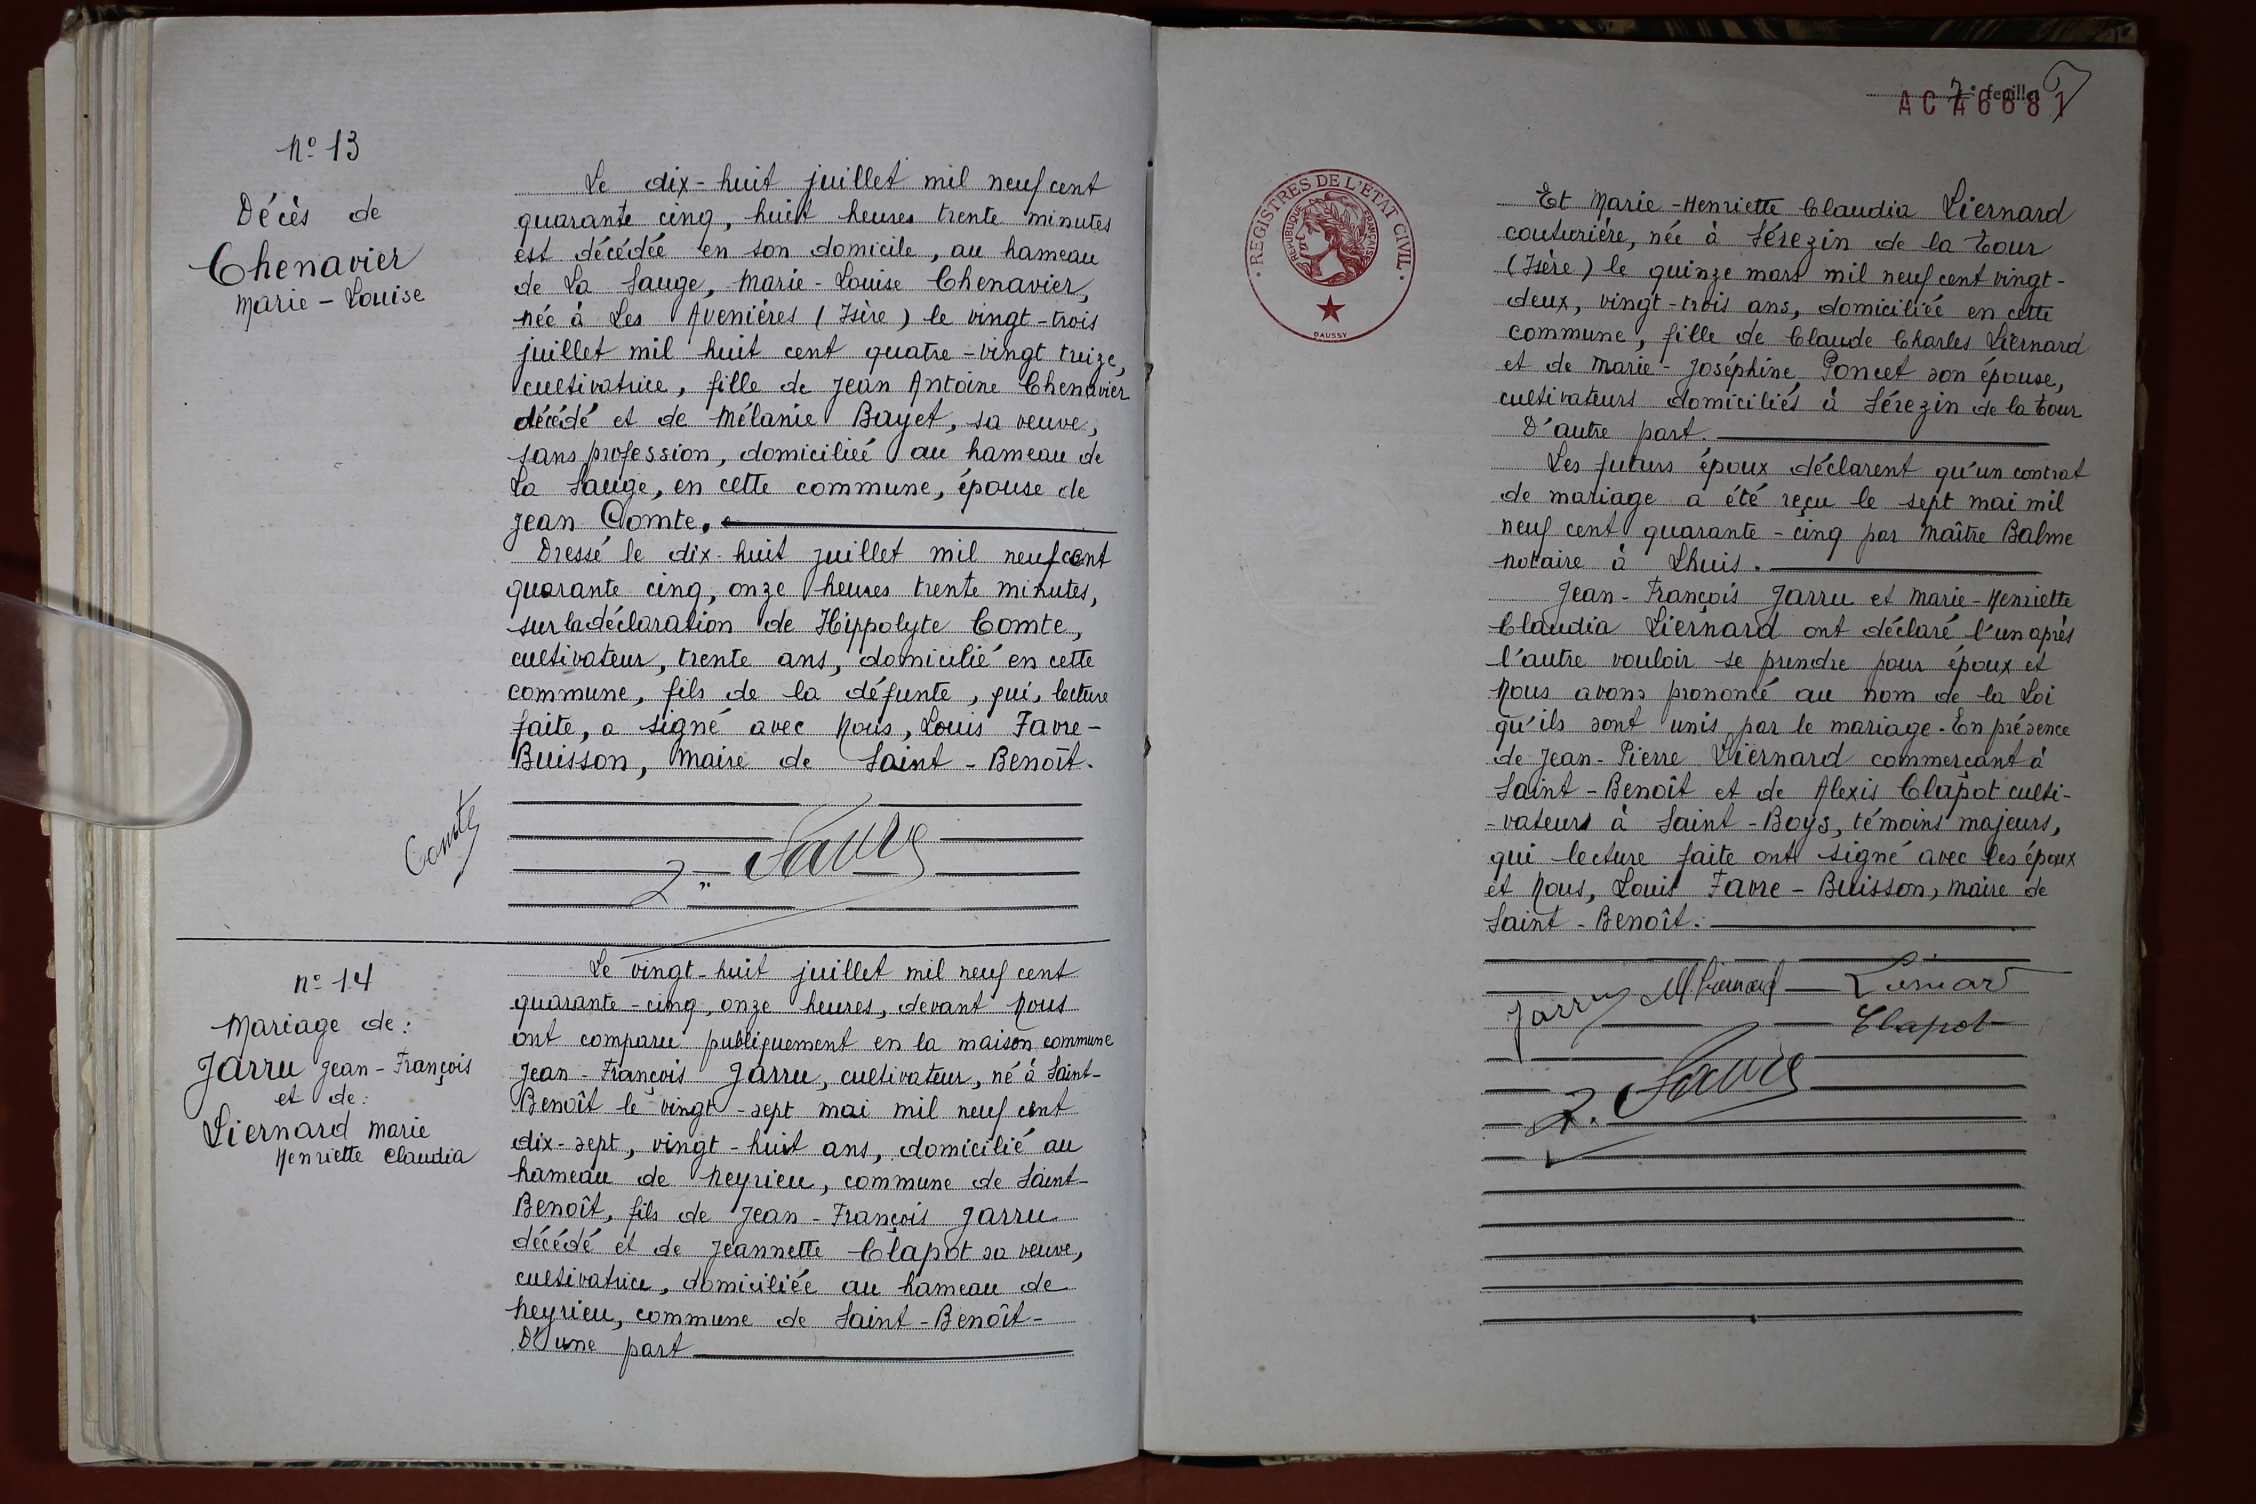 N° 13
Décès de
Chenavier
Marie-Louise
Le dix-huit juillet mil neuf cent
quarante cinq, huit heures trente minutes
est décédée en son domicile, au hameau
de La Sauge, Marie-Louise Chenavier,
née à Les Avenières (Isère) le vingt-trois
juillet mil huit cent quatre-vingt treize,
cultivatrice, fille de Jean Antoine Chenavier
décédé et de Mélanie Bayet, sa veuve,
sans profession, domiciliée au hameau de
La Sauge, en cette commune, épouse de
Jean Comte.
Dressé le dix-huit juillet mil neuf cent
quarante cinq, onze heures trente minutes,
sur la déclaration de Hippolyte Comte,
cultivateur, trente ans, domicilié en cette
commune, fils de la défunte, qui, lecture
faite, a signé avec Nous, Louis Favre-
Buisson, Maire de Saint-Benoît.
Comte
Favre
n° 14
Mariage de:
Jarru Jean-François
et de:
Liernard Marie
Henriette Claudia
Le vingt-huit juillet mil neuf cent
quarante-cinq, onze heures, devant Nous
ont comparu publiquement en la maison commune
Jean-François Jarru, cultivateur, né à Saint-
Benoît le vingt-sept mai mil neuf cent
dix-sept, vingt-huit ans, domicilié au
hameau de Neyrieu, commune de Saint-
Benoît, fils de Jean-François Jarru
décédé et de Jeannette Clapot sa veuve,
cultivatrice, domiciliée au hameau de
Neyrieu, commune de Saint-Benoît-
D'une part
7e feuillet
AC A66881
REGISTRES DE L'ETAT CIVIL
REPUBLIQUE FRANÇAISE
DAUSSY
Et Marie-Henriette Claudia Liernard
couturière, née à Sérezin de la Tour
(Isère) le quinze mars mil neuf cent vingt-
deux, vingt-trois ans, domiciliée en cette
commune, fille de Claude Charles Liernard
et de Marie-Joséphine Poncet son épouse,
cultivateurs domiciliés à Sérezin de la Tour
D'autre part.
Les futurs époux déclarent qu'un contrat
de mariage a été reçu le sept mai mil
neuf cent quarante-cinq par Maître Balme
notaire à Lhuis.
Jean-François Jarru et Marie-Henriette
Claudia Liernard ont déclaré l'un après
l'autre vouloir se prendre pour époux et
Nous avons prononcé au nom de la Loi
qu'ils sont unis par le mariage. En présence
de Jean-Pierre Liernard commerçant à
Saint-Benoît et de Alexis Clapot culti-
-vateurs à Saint-Boys, témoins majeurs,
qui lecture faite ont signé avec les époux
et Nous, Louis Favre-Buisson, Maire de
Saint-Benoît.
Jarru M Liernard Liernard
Clapot
Favre